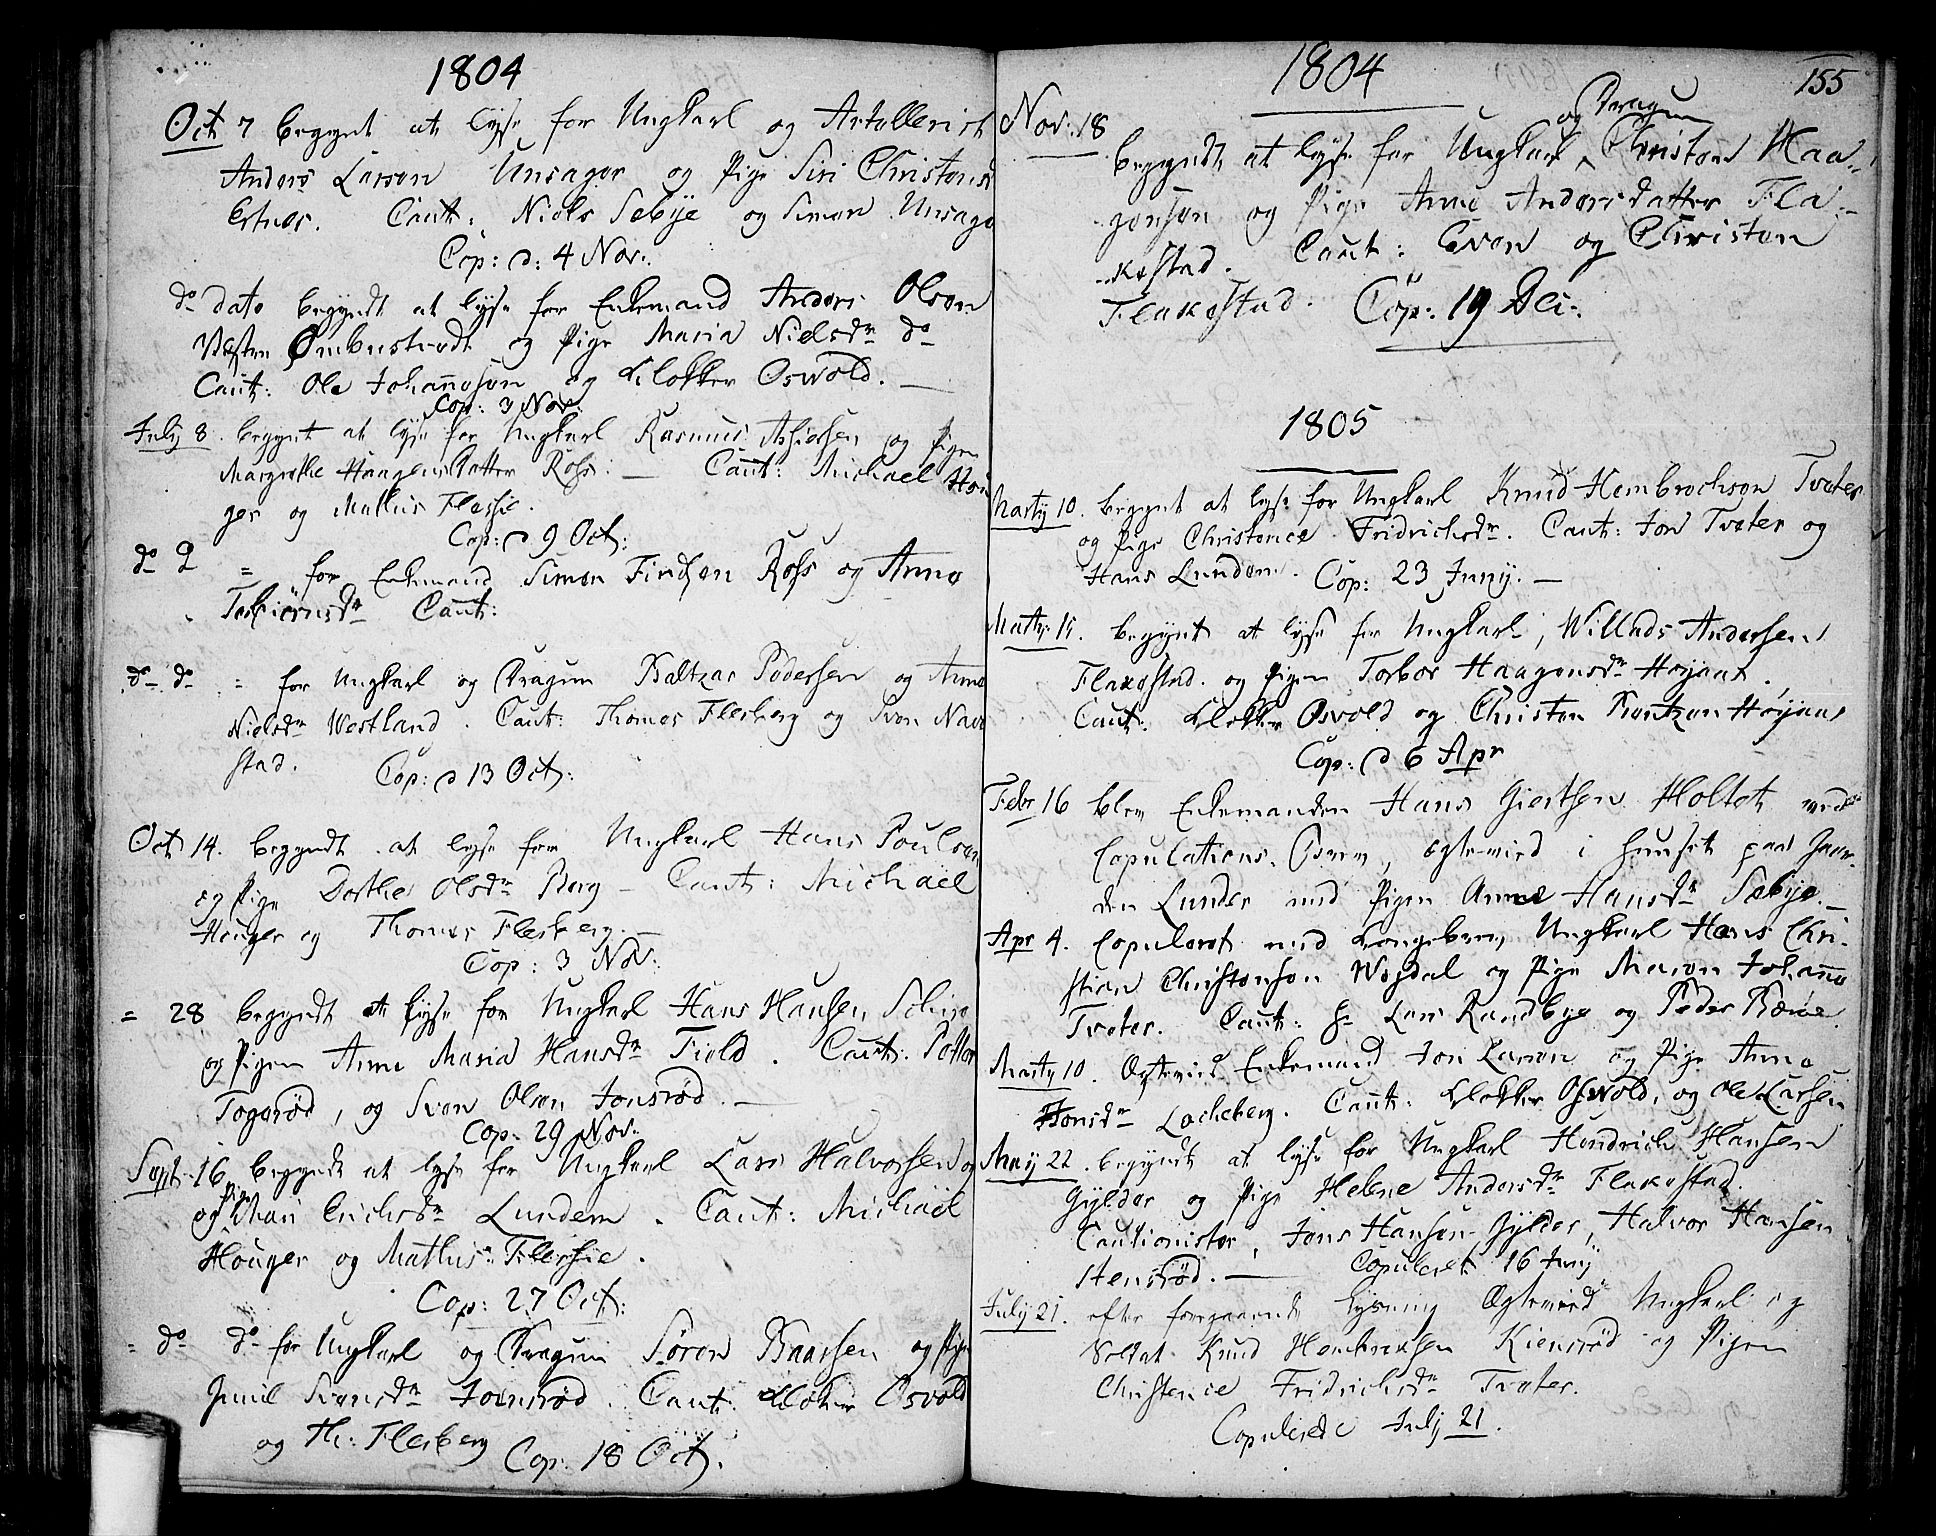 1804
Oct 7 begynt at lyse for Ungkarl og Artollerist
Anders Larsen Unsager og Pige Siri Christens
Estnes. Caut: Niels Sebye og Simon Unsage
Cop: d: 4 Nov:
do dato begyndt at lyse for Enkemand Anders Olsen
Vesten Ombustvedt og Pige Maria Nielsdr do
Caut: Ole Johannesen og Klokker Oswold.
Cop: 3 Nov:
July 8. begynt at lyse for Ungkarl Rasmus og Pigen
Margrethe Haagensdatter Ross: Caut: Michael Hou
ger og Mathis Flessie.
Cop: d 9 Oct:
do = for Enkemand Simen Findsen Ross og Anne
Torbiörnsdr Caut:
do do = for Ungkarl og Dragun Baltzar Pedersen og Anne
Nielsdr Westland. Caut: Thomas Flesberg og Sven Nave
stad.
Cop: d 13 Oct:
Oct 14. begyndt at lyse for Ungkarl Hans Poulsen
og Pige Dorthe Olsdr Berg - Caut: Michael
Houger og Thomes Flesberg.
Cop: 3 Nov:
= 28 begyndt at lyse for Ungkarl Hans Hansen
og Pigen Anne Maria Hansdr Field. Caut: Petter
Togerød, og Sven Olsen Jonsrød.
Cop: 29 Nov:
Sept. 16 begyndt at lyse for Ungkarl Lars Halvorsen og
Pige Mari Erichsdr Lundem. Caut: Michäel
Houger og Mathis Flessie.
Cop: 27 Oct:
= do do for Ungkarl og Dragun Søren Baarsen og Pige
Gunil Svensdr Joensrød. Caut: Klokker Osvold
og Th: Flesberg Cop: 18 Oct.
155
1804
og Dragun
Nov: 18 begyndt at lyse for Ungkarl Christen Haa-
gensen og Pige Anne Andersdatter Fla-
kestad. Caut: Even og Christen
Flakestad. Cop: 19 Dec:
1805
Marty 10. begynt at lyse for Ungkarl Knud Hembrechsen Tveter
og Pige Christence Fridrichsdr. Caut: Jon Tveter og
Hans Lundem. Cop: 23 Juny.
Marty 15. begynt at lyse for Ungkarl, Willads Andersen
Flakestad. og Pigen Torbor Haagensdr Høyaas.
Caut: Klokker Osvold og Christen Høyaas
Cop: d 6 Apr
Febr 16 blev Enkemanden Hans Giertsen Holtet ved
Copulations-Brev, ægtevied i huuset paa Gaar-
den Lunder med Pigen Anne Hansdr Sæbye.
Apr 4. Copuleret med Kongebrev, Ungkarl Hans Chri-
stian Christensen Wogdal og Pige Maren Johanne
Tveter. Caut: Hr Lars Randbye og Peder Ræne
Marty 10. Ægteviet Enkemand Jon Larsen og Pige Anne
Jonsdr Lacheberg. Caut: Klokker Oswold, og Ole Larsen
Maij 22. begyndt at lyse for Ungkarl Hendrich Hansen
Gylder og Pige Helene Andersdr Flakestad.
Cautionister, Jens Hansen Gylder, Halvor Hansen
Stensrød. Copuleret 16 Junij
July 21. efter foregaaende Lysning Ægteviede Ungkarl og
Soldat Knud Hembrecksen Kiensrød og Pigen
Christence Fridrichsdr Tveter.
Copulerede Julij 21.